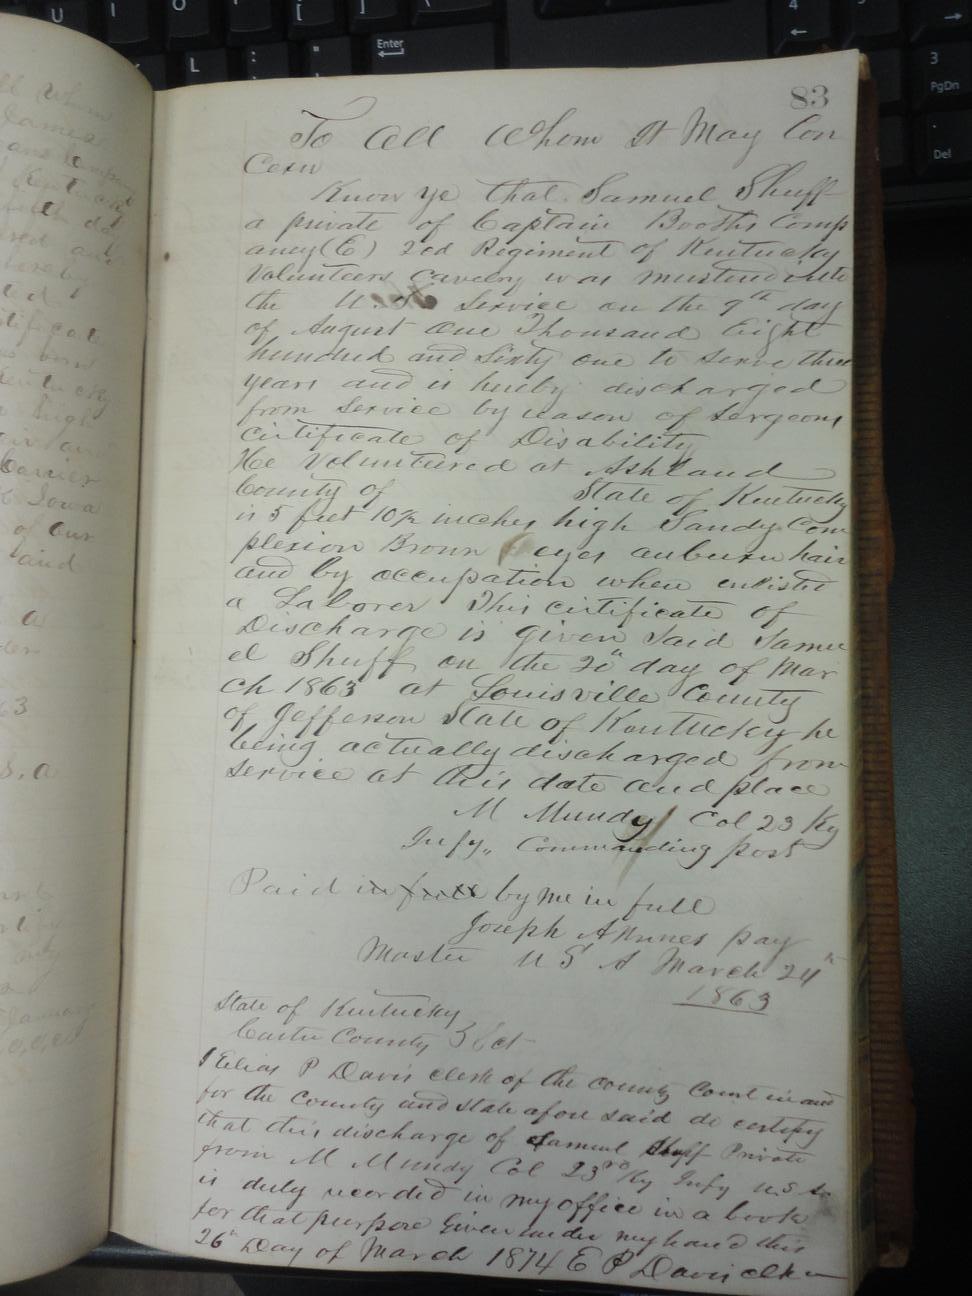 83
To All Whom It May Con
cern
Know ye that Samuel Shuff
a private of Captain Booths Comp
any (E) 2cd Regiment of Kentucky
Volunteers Cavelry was mustered into
the U.S. Service on the 9th day
of August One Thousand Eight
hundred and Sixty one to serve three
years and is hereby discharged
from Service by reason of Sergeons
Certificate of Disability
He Volunteered at Ashland
County of State of Kentucky
is 5 feet 10½ inches high Sandy Com
plexion Brown eyes auburn hair
and by occupation when enlisted
a Laborer This certificate of
Discharge is given Said Samu
el Shuff on the 20" day of Mar
ch 1863 at Louisville County
of Jefferson State of Kentucky he
being actually discharged from
service at this date and place
M Mundy Col 23 Ky
Infy,, Commanding post
Paid in full by me in full
Joseph pay
Master U S A March 24th
1863
State of Kentucky
Carter County Sct
I Elias P Davis clerk of the county Court in and
for the County and State afore said do certify
that this discharge of Samuel Shuff Private
from M Mundy Col 23rd Ky Infy U.S.
is duly recorded in my office in a book
for that purpose Given under my hand this
26th Day of March 1874 E P Davis clk
when
James
and
Kentucky
day
hereby
hair and
Iowa
of our
said
a
63
S. a
January